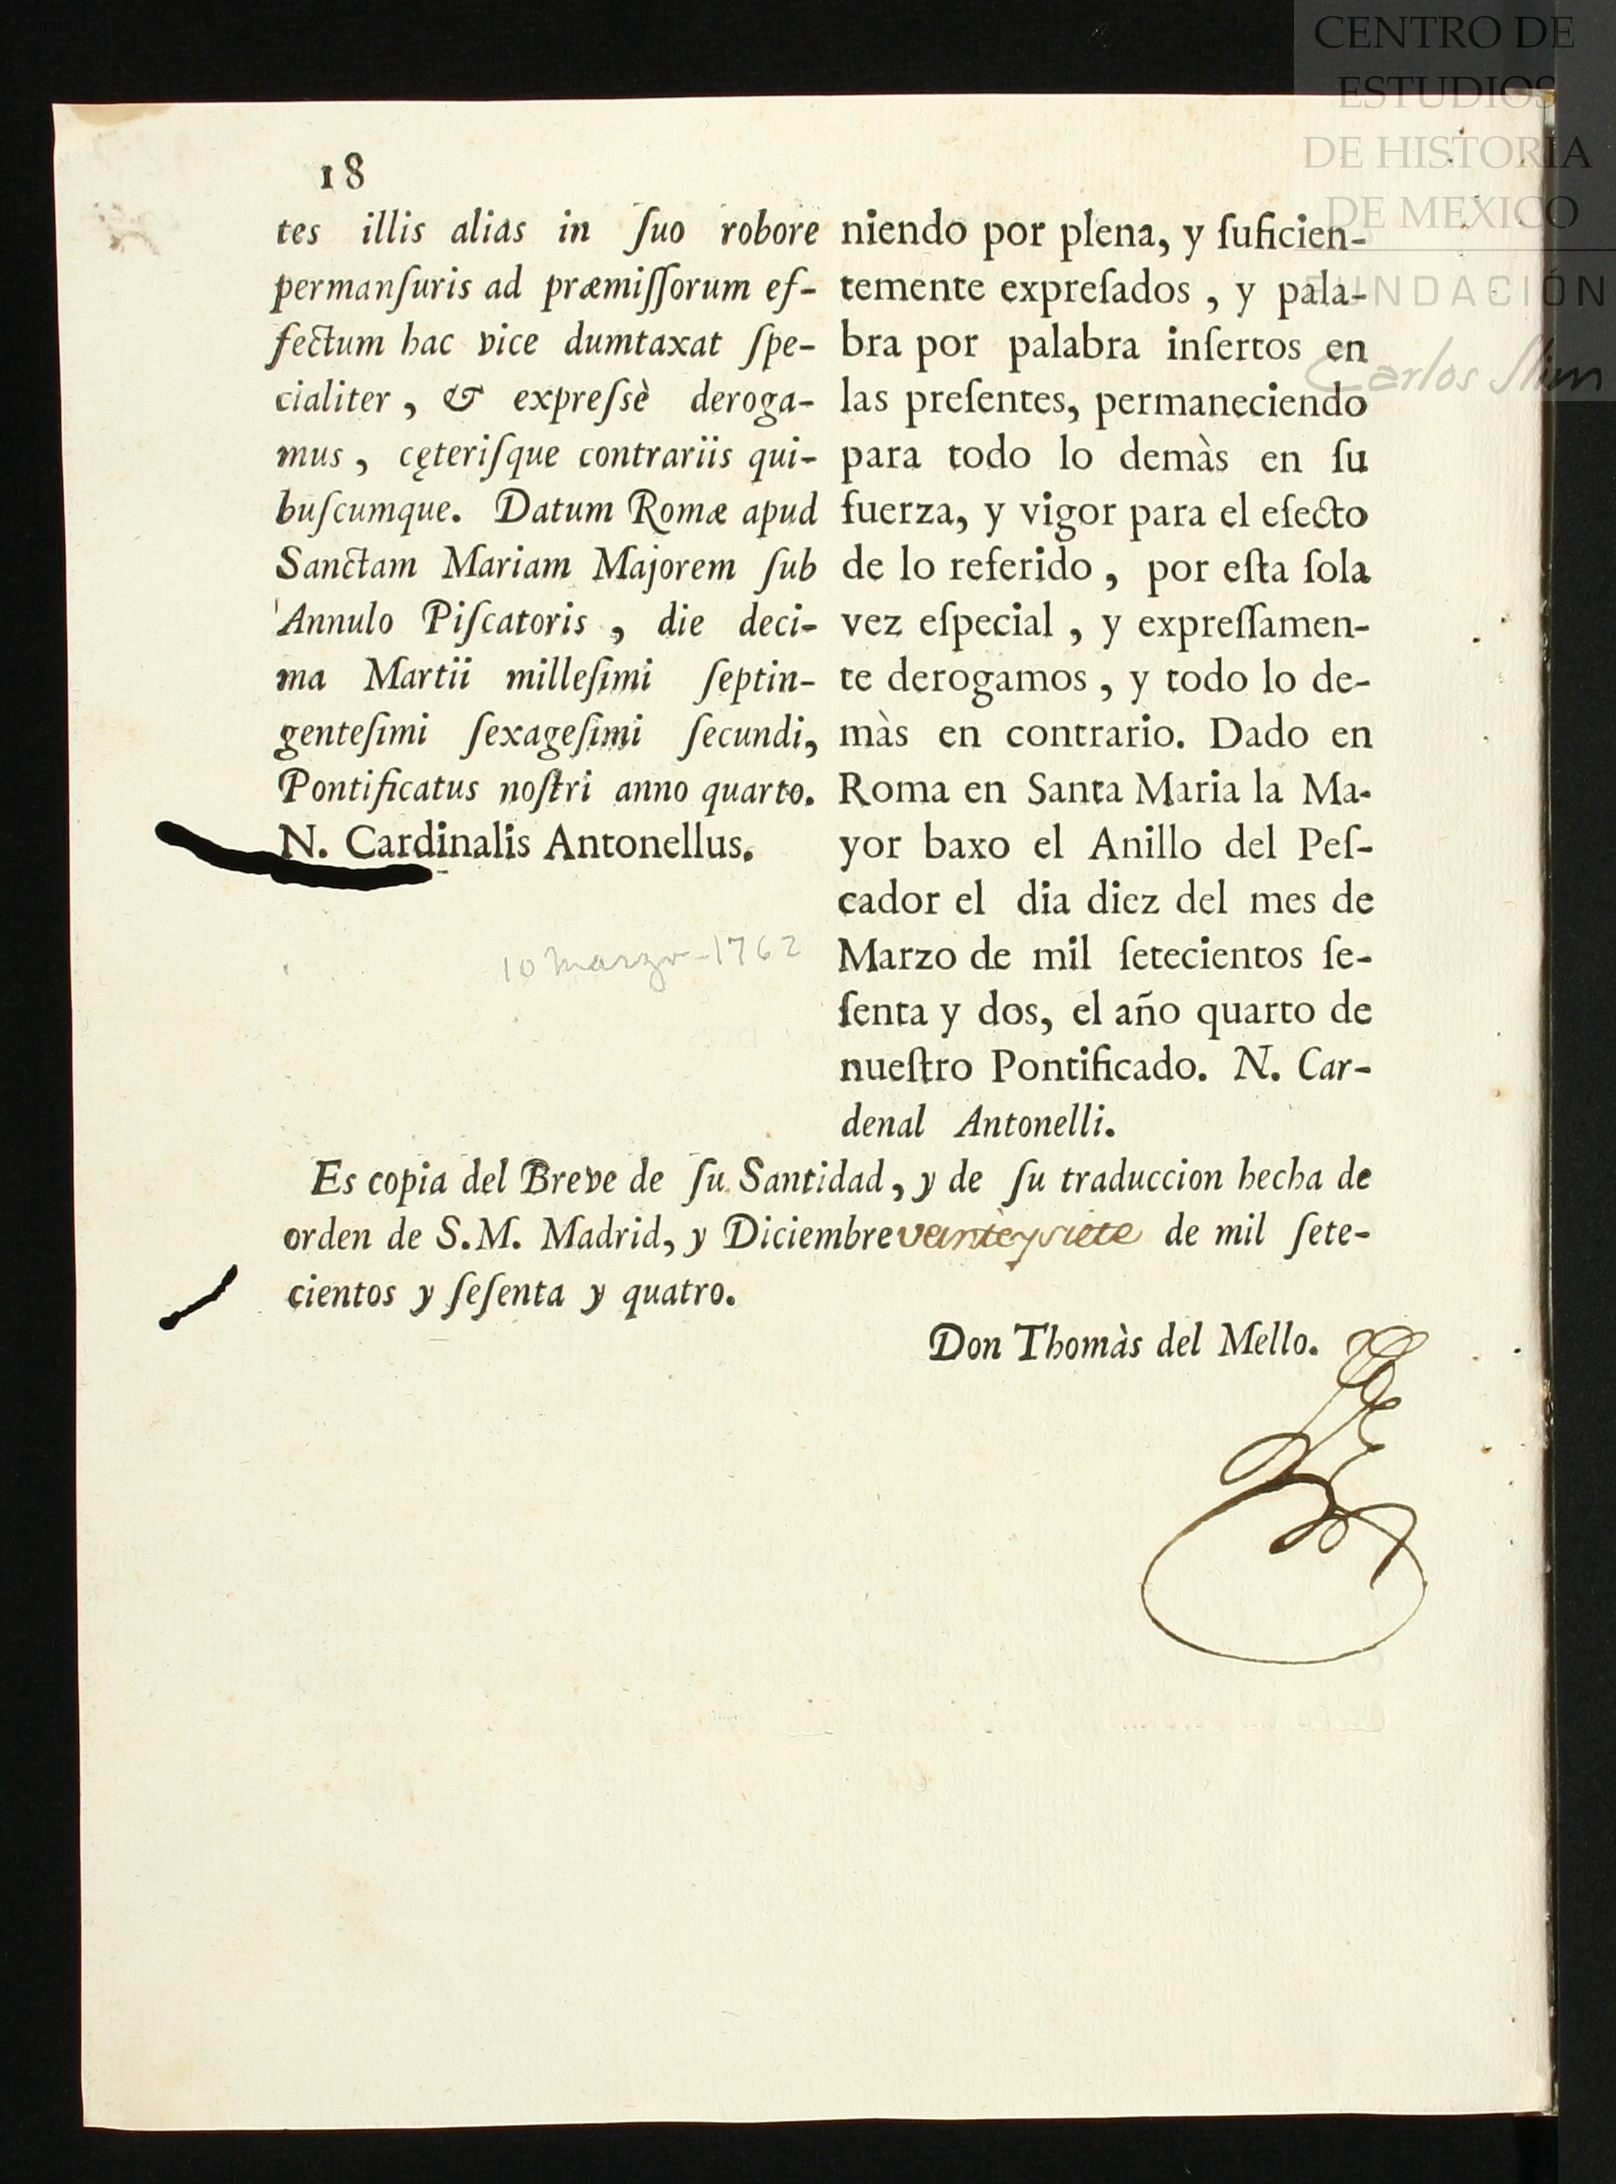 CENTRO DE
ESTUDIOS
DE HISTORIA
DE MEXICO
FUNDACIÓN
Carlos Slim
18
tes illis alias in ſuo robore
permanſuris ad præmiſſorum ef-
fectum hac vice dumtaxat ſpe-
cialiter, & expreſsè deroga-
mus, cęteriſque contrariis qui-
buſcumque. Datum Romæ apud
Sanctam Mariam Majorem ſub
Annulo Piſcatoris, die deci-
ma Martii milleſimi ſeptin-
genteſimi ſexageſimi ſecundi,
Pontificatus noſtri anno quarto.
N. Cardinalis Antonellus.
10 marzo-1762
niendo por plena, y ſuficien-
temente expreſados, y pala-
bra por palabra inſertos en
las preſentes, permaneciendo
para todo lo demàs en ſu
fuerza, y vigor para el efecto
de lo referido, por eſta ſola
vez eſpecial, y expreſſamen-
te derogamos, y todo lo de-
màs en contrario. Dado en
Roma en Santa Maria la Ma-
yor baxo el Anillo del Peſ-
cador el dia diez del mes de
Marzo de mil ſetecientos ſe-
ſenta y dos, el año quarto de
nueſtro Pontificado. N. Car-
denal Antonelli.
Es copia del Breve de ſu Santidad, y de ſu traduccion hecha de
orden de S.M. Madrid, y Diciembre veinte y siete de mil ſete-
cientos y ſeſenta y quatro.
Don Thomàs del Mello.